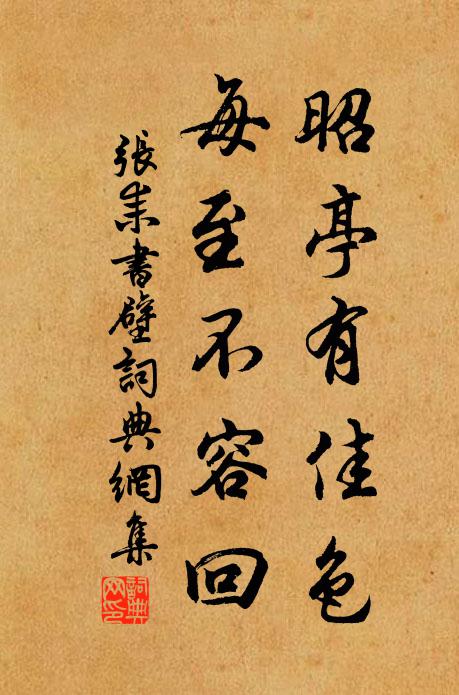 昭亭有佳色
每至不容回
張耒書壁詞典網集
詞典
网印